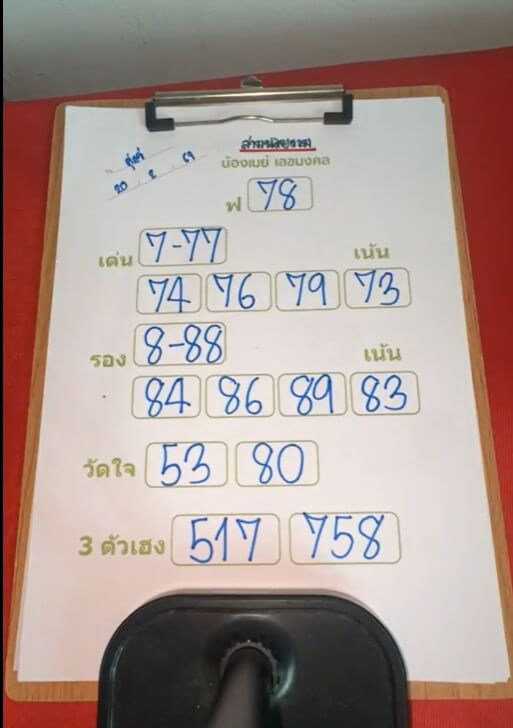 น้องเมย์ เลขมงคล
ฟ 78
เด่น 7-77 เน้น
74 76 79 73
รอง 8-88 เน้น
84 86 89 83
วัดใจ 53 80
3 ตัวเฮง 517 758